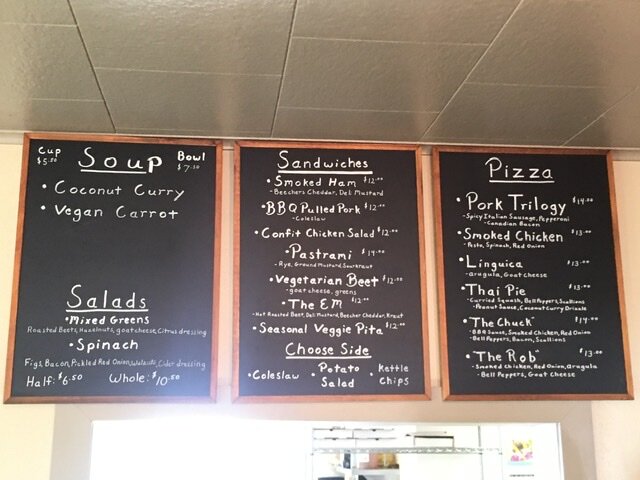 Cup $5.50 Soup Bowl $7.50
• Coconut Curry
• Vegan Carrot
Salads
• Mixed Greens
Roasted Beets, Hazelnuts, goat cheese, Citrus dressing
• Spinach
Figs, Bacon, Pickled Red Onion, Walnuts, Cider dressing
Half: $6.50 Whole: $10.50
Sandwiches
• Smoked Ham $12.00
- Beechers Cheddar, Deli Mustard
• BBQ Pulled Pork $12.00
- Coleslaw
• Confit Chicken Salad $12.00
• Pastrami $14.00
- Rye, Ground Mustard, Sourkraut
• Vegetarian Beet $12.00
- goat cheese, greens
• The EM $12.00
- Hot Roasted Beef, Deli Mustard, Beecher Cheddar, Kraut
• Seasonal Veggie Pita $12.00
Choose Side
• Coleslaw • Potato Salad • Kettle Chips
Pizza
• Pork Trilogy $14.00
- Spicy Italian Sausage, Pepperoni
- Canadian Bacon
• Smoked Chicken $13.00
- Pesto, Spinach, Red Onion
• Linguica $13.00
- arugula, Goat cheese
• Thai Pie $13.00
- Curried Squash, Bell Peppers, Scallions
- Peanut Sauce, Coconut Curry Drizzle
• "The Chuck" $14.00
- BBQ Sauce, Smoked Chicken, Red Onion
- Bell Peppers, Bacon, Scallions
• "The Rob" $13.00
- Smoked Chicken, Red Onion, Arugula
- Bell Peppers, Goat Cheese